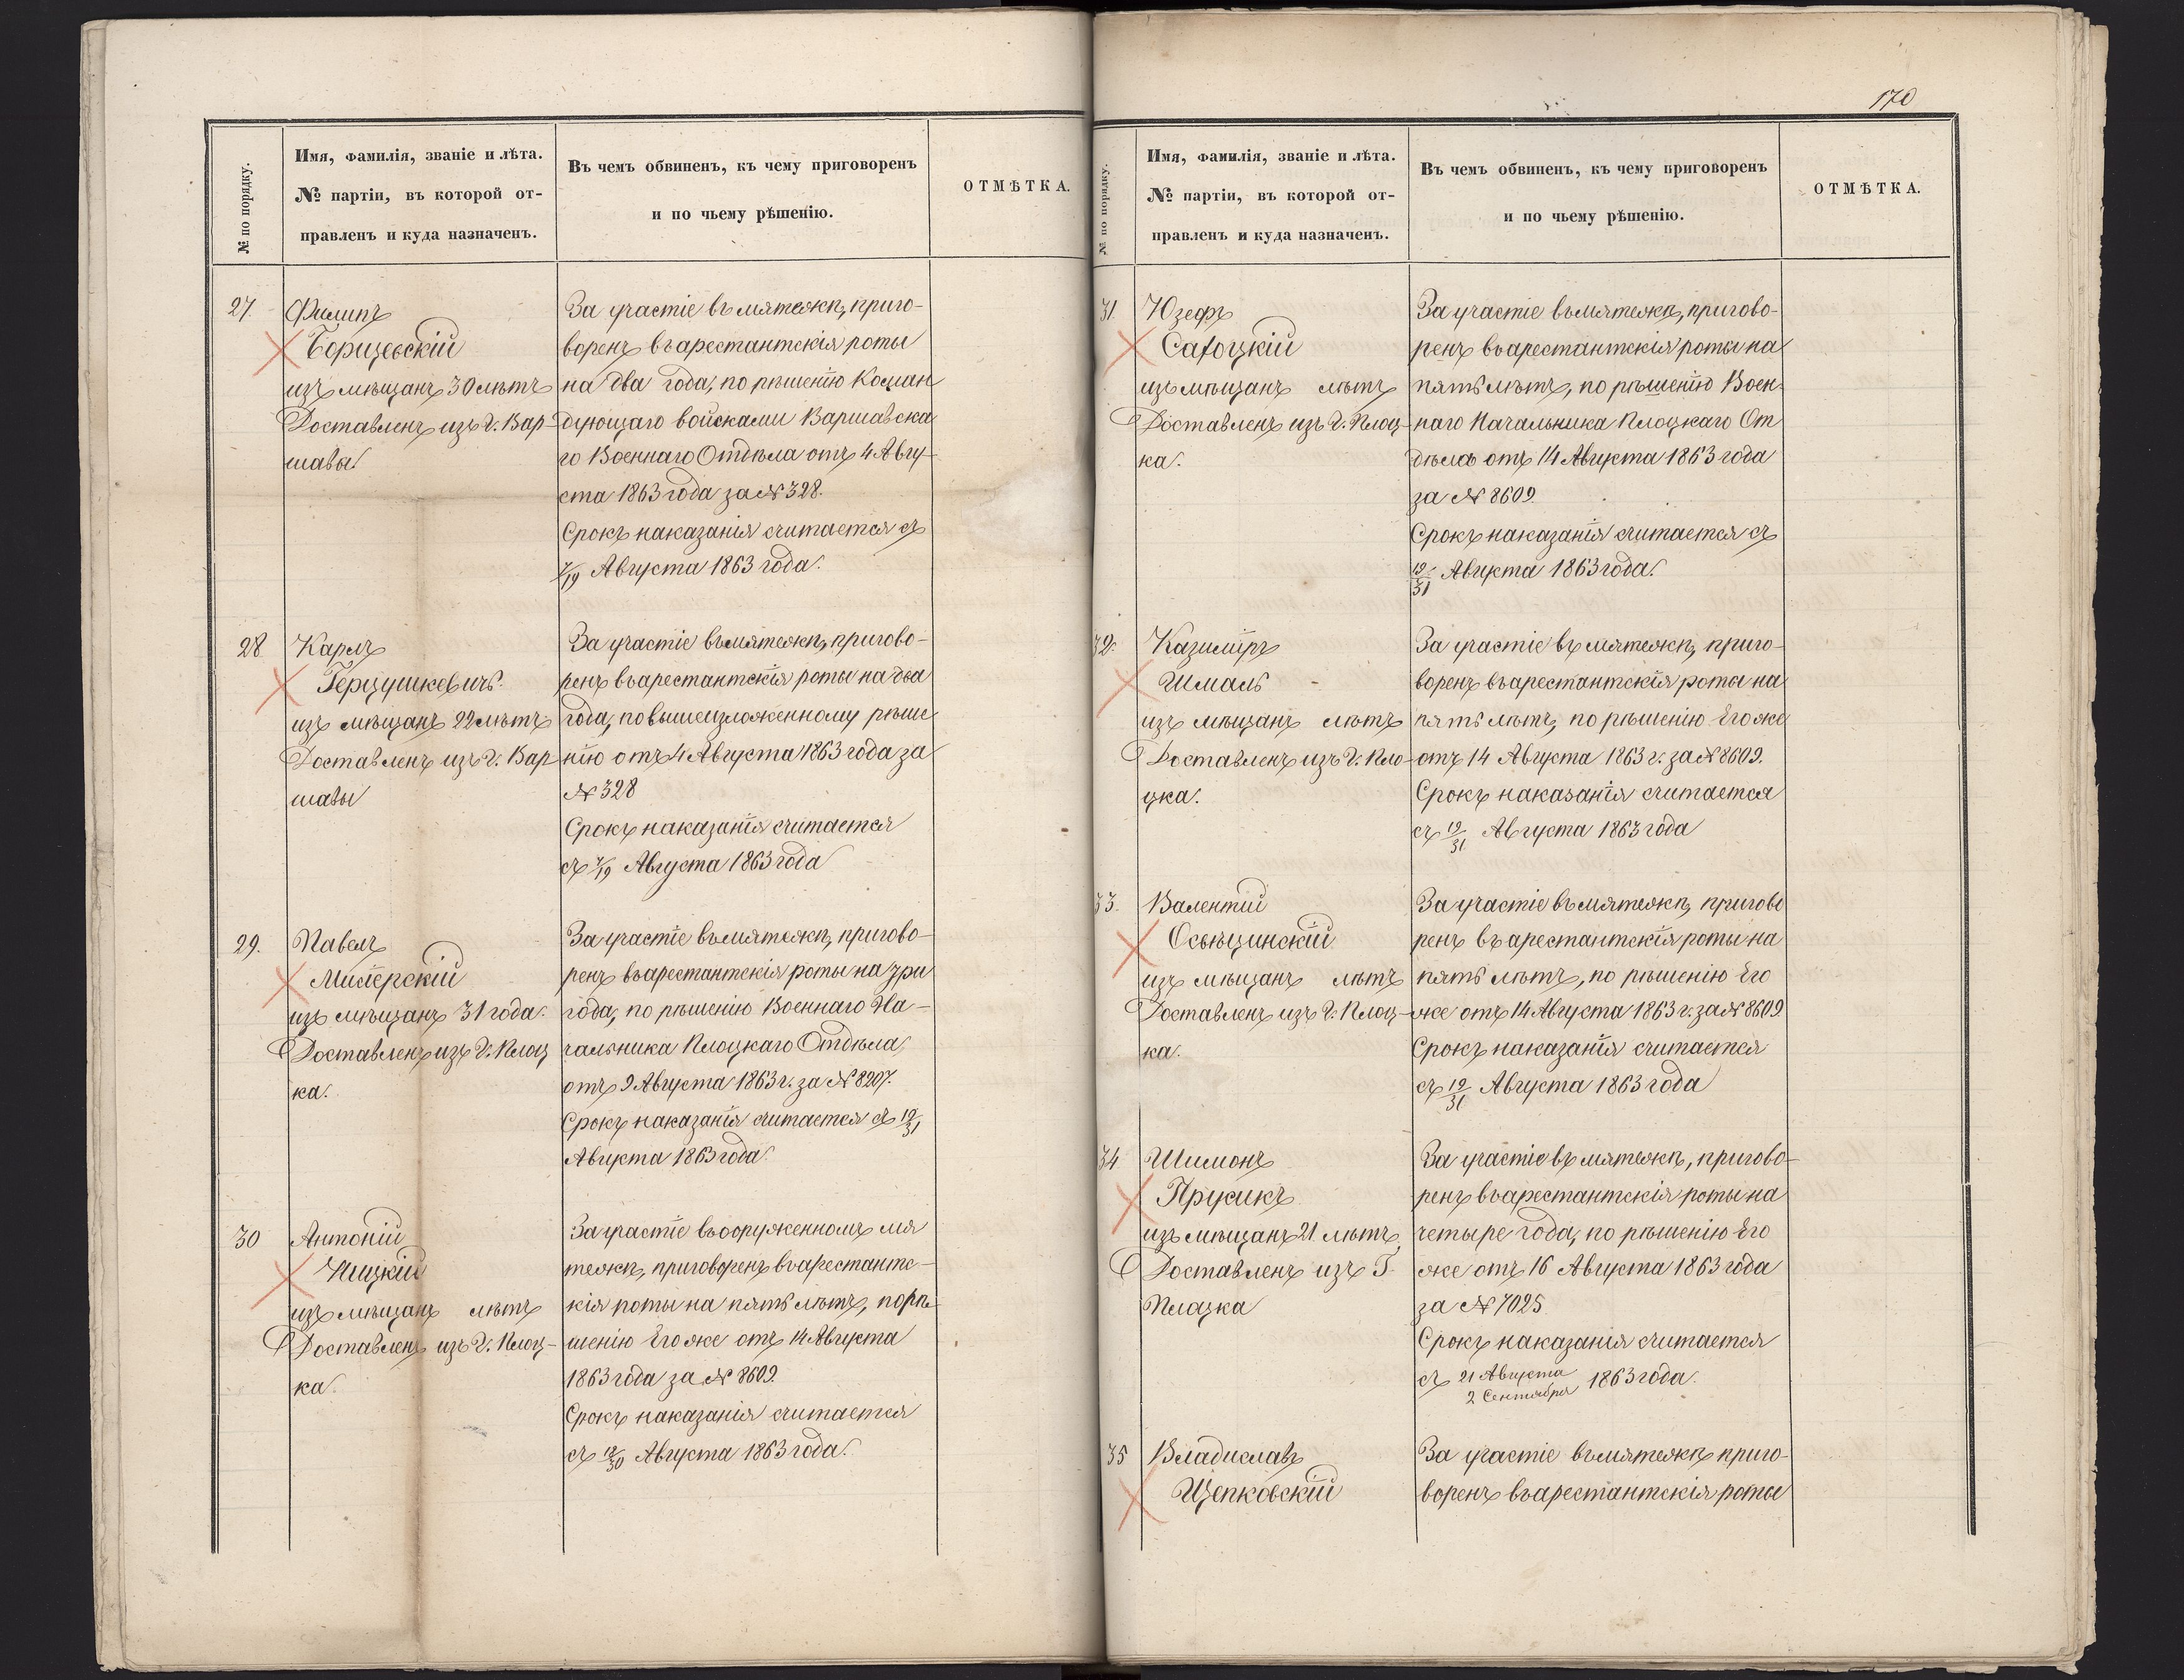 № по порядку.
Имя, фамилія, званіе и лѣта.
№ партіи, въ которой от-
правленъ и куда назначенъ.
Въ чемъ обвиненъ, къ чему приговоренъ
и по чьему рѣшенію.
ОТМѢТКА.
27.
Филипъ
Борщевскій
изъ мѣщанъ 30 лѣтъ
Доставленъ изъ г. Вар-
шавы.
За участіе въ мятежѣ, приго-
воренъ въ арестантскія роты
на два года, по рѣшенію Коман
дующаго войсками Варшавска
го Военнаго Отдѣла отъ 4 Авгу-
ста 1863 года за № 328.
Срокъ наказанія считается съ
7/19 Августа 1863 года.
28
Карлъ
Герцушкевичъ.
изъ мѣщанъ 22 лѣтъ
Доставленъ изъ г. Вар
шавы
За участіе въ мятежѣ, пригово-
ренъ въ арестантскія роты на два
года, по вышеизложенному рѣше
нію отъ 4 Августа 1863 года за
№ 328
Срокъ наказанія считается
съ 7/19 Августа 1863 года
29.
Павелъ
изъ мѣщанъ 31 года.
Доставленъ изъ г. Плоц
ка.
За участіе въ мятежѣ, пригово-
ренъ въ арестантскія роты на три
года, по рѣшенію Военнаго На-
чальника Плоцкаго Отдѣла,
отъ 9 Августа 1863 г. за № 8207.
Срокъ наказанія считается съ 19/31
Августа 1863 года.
30
Антоній
изъ мѣщанъ лѣтъ
Доставленъ изъ г. Плоц-
ка.
За участіе въ вооруженномъ мя
тежѣ, приговоренъ въ арестантс-
кія роты на пять лѣтъ, по рѣ
шенію Его же отъ 14 Августа
1863 года за № 8609.
Срокъ наказанія считается
съ 18/30 Августа 1863 года.
170
№ по порядку.
Имя, фамилія, званіе и лѣта.
№ партіи, въ которой от-
правленъ и куда назначенъ.
Въ чемъ обвиненъ, къ чему приговоренъ
и по чьему рѣшенію.
ОТМѢТКА.
31.
Юзефъ
изъ мѣщанъ лѣтъ
Доставленъ изъ г. Плоц-
ка.
За участіе въ мятежѣ, пригово-
ренъ въ арестантскія роты на
пять лѣтъ, по рѣшенію Воен-
наго Начальника Плоцкаго От
дѣла отъ 14 Августа 1863 года
за № 8609.
Срокъ наказанія считается съ
19/31 Августа 1863 года.
32.
Казиміръ
Шмаль
изъ мѣщанъ лѣтъ
Доставленъ изъ г. Пло-
цка.
За участіе въ мятежѣ, приго-
воренъ въ арестантскія роты на
пять лѣтъ, по рѣшенію Его же
отъ 14 Августа 1863 г. за № 8609.
Срокъ наказанія считается
съ 19/31 Августа 1863 года
33.
Валентій
Осьнцинскій
изъ мѣщанъ лѣтъ
Доставленъ изъ г. Плоц-
ка.
За участіе въ мятежѣ, пригово
ренъ въ арестантскія роты на
пять лѣтъ, по рѣшенію Его
же отъ 14 Августа 1863 г. за № 8609
Срокъ наказанія считается
съ 19/31 Августа 1863 года
34
Шимонъ
Прусикъ
изъ мѣщанъ 21 лѣтъ,
Доставленъ изъ Г.
Плацка
За участіе въ мятежѣ, пригово-
ренъ въ арестантскія роты на
четыре года, по рѣшенію Его
же отъ 16 Августа 1863 года
за № 7025
Срокъ наказанія считается
съ 21 Августа/2 Сентября 1863 года.
35
Владиславъ
Щепковскій
За участіе въ мятежѣ приго-
воренъ въ арестантскія роты